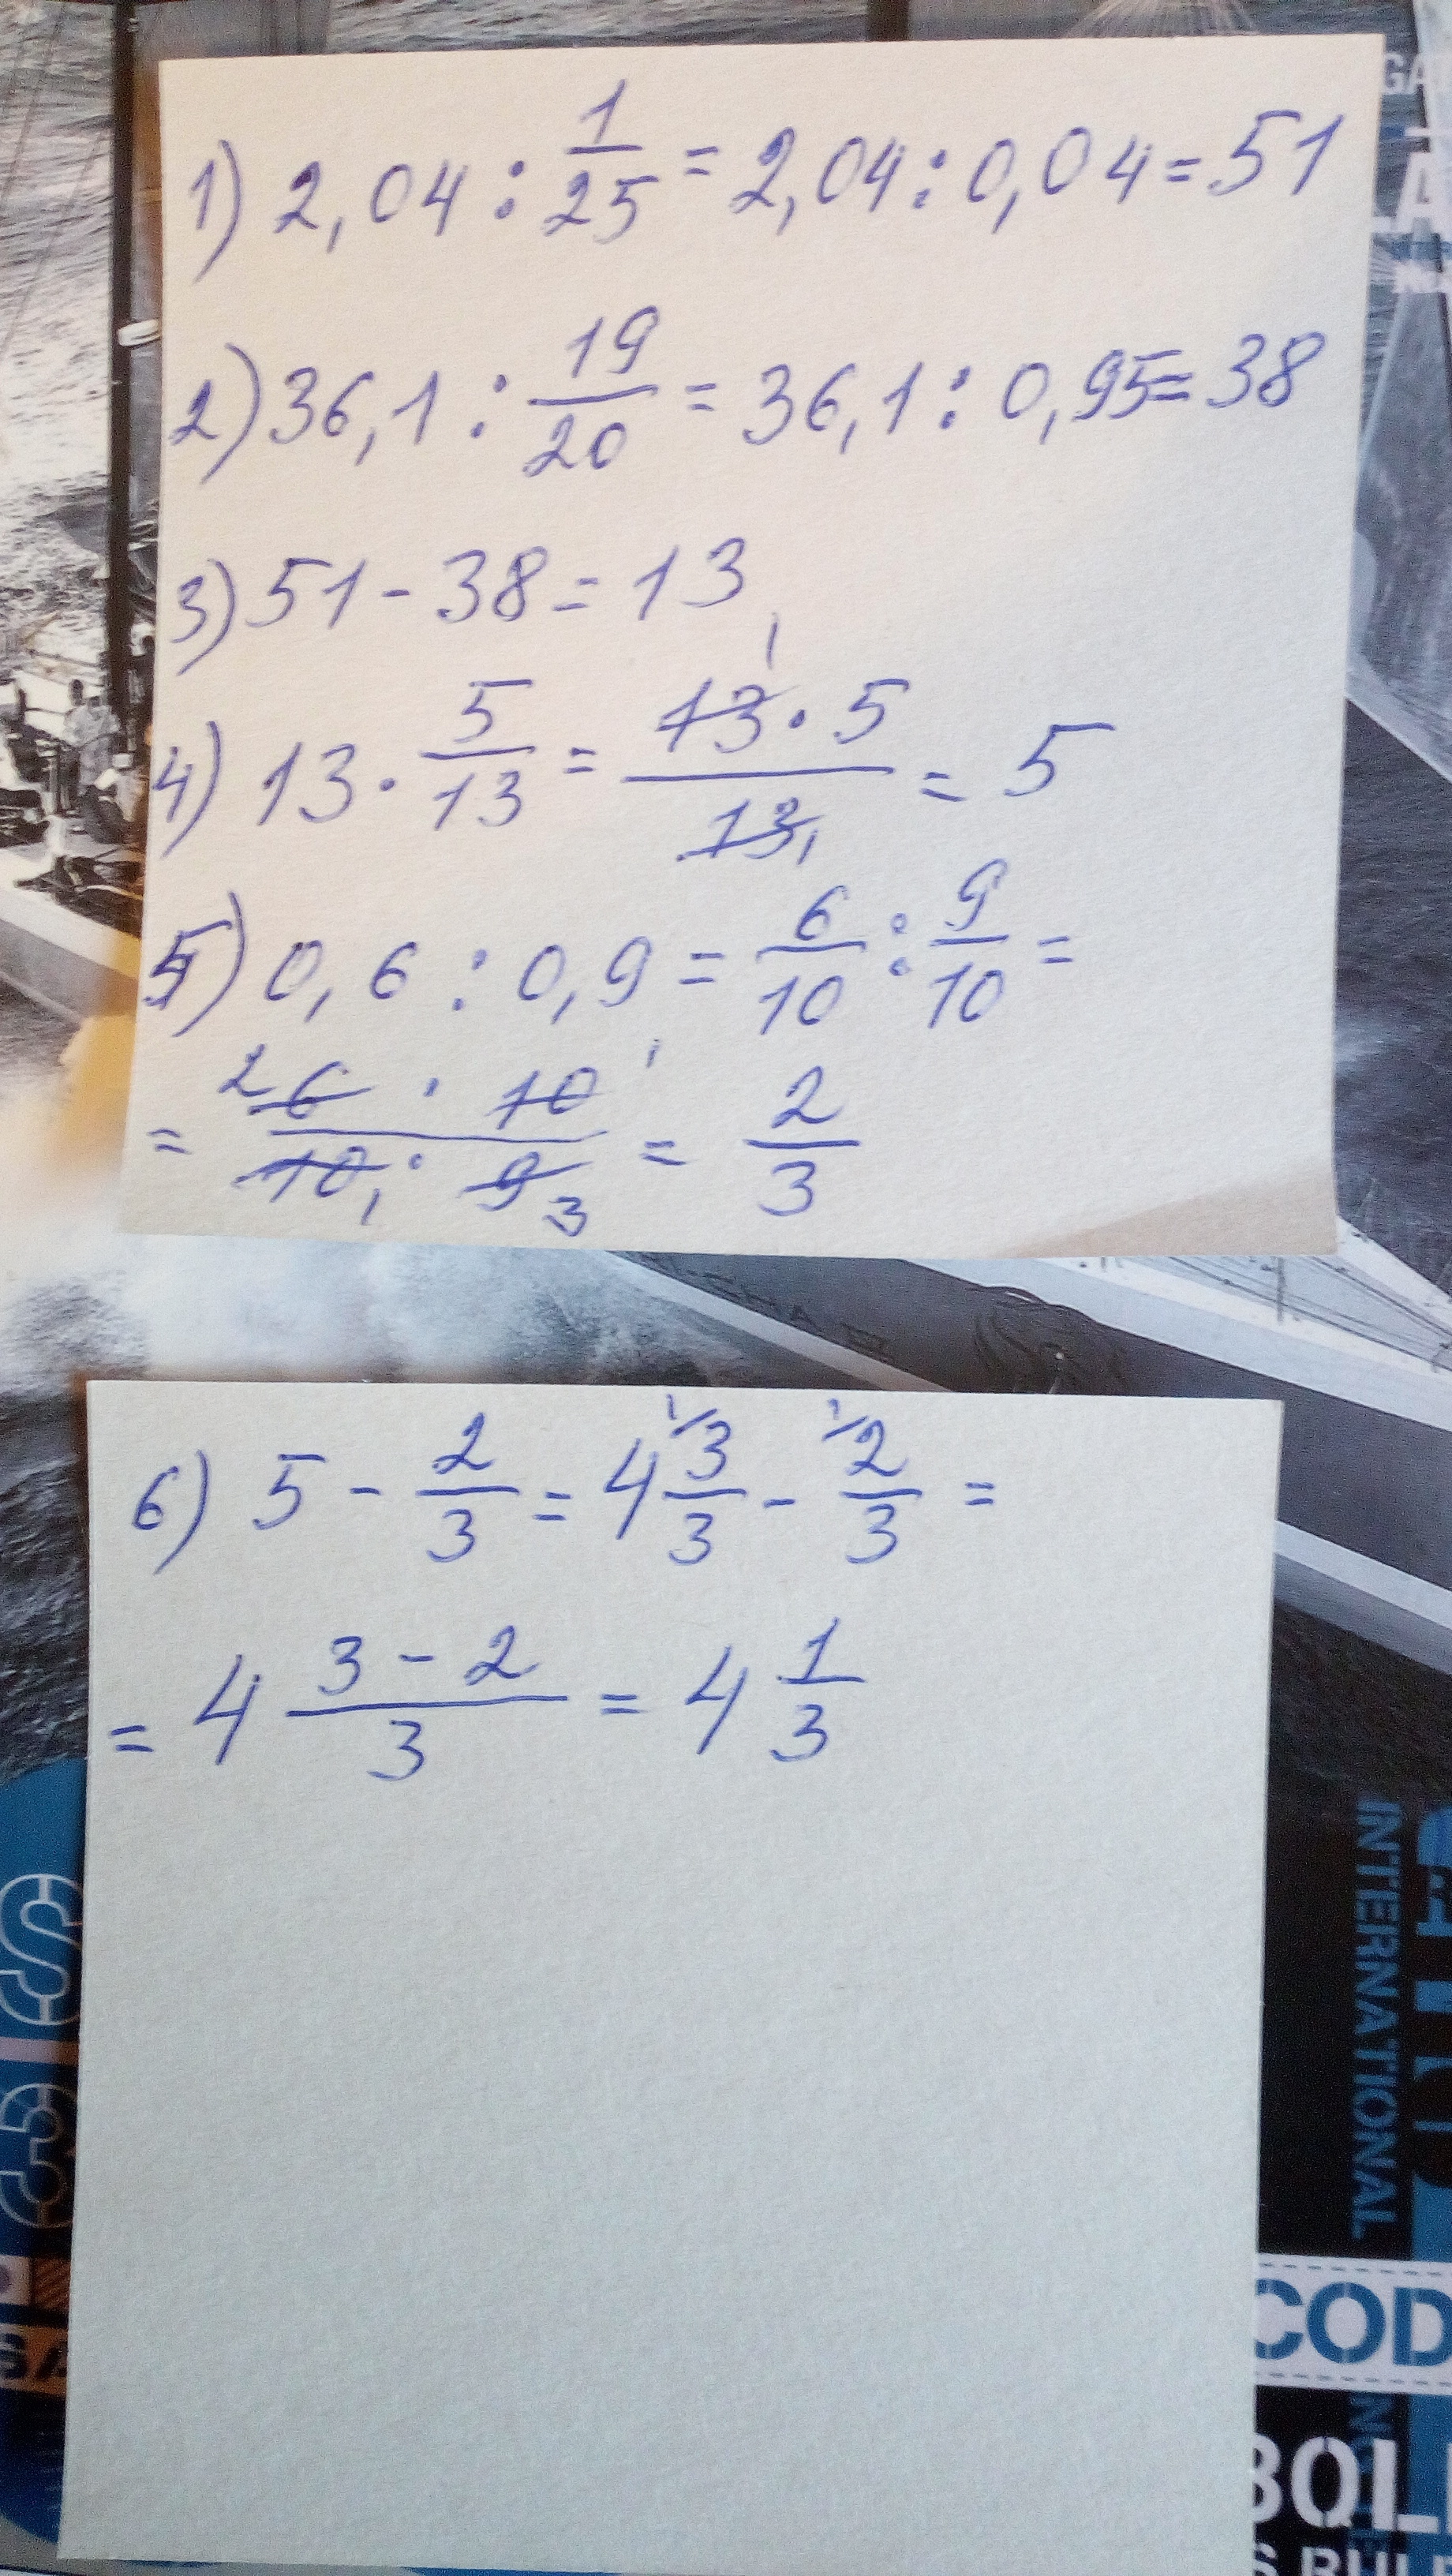 1) 2,04 : 1/25 = 2,04 : 0,04 = 51
2) 36,1 : 19/20 = 36,1 : 0,95 = 38
3) 51 - 38 = 13
4) 13 · 5/13 = 13 1 · 5/13 1 = 5
5) 0,6 : 0,9 = 6/10 : 9/10 =
= 2 6 · 10 1/10 1 · 9 3 = 2/3
6) 5 - 2/3 = 4 1/ 3/3 - 1/ 2/3 =
= 4 3 - 2/3 = 4 1/3
INTERNATIONAL
COD
BOL